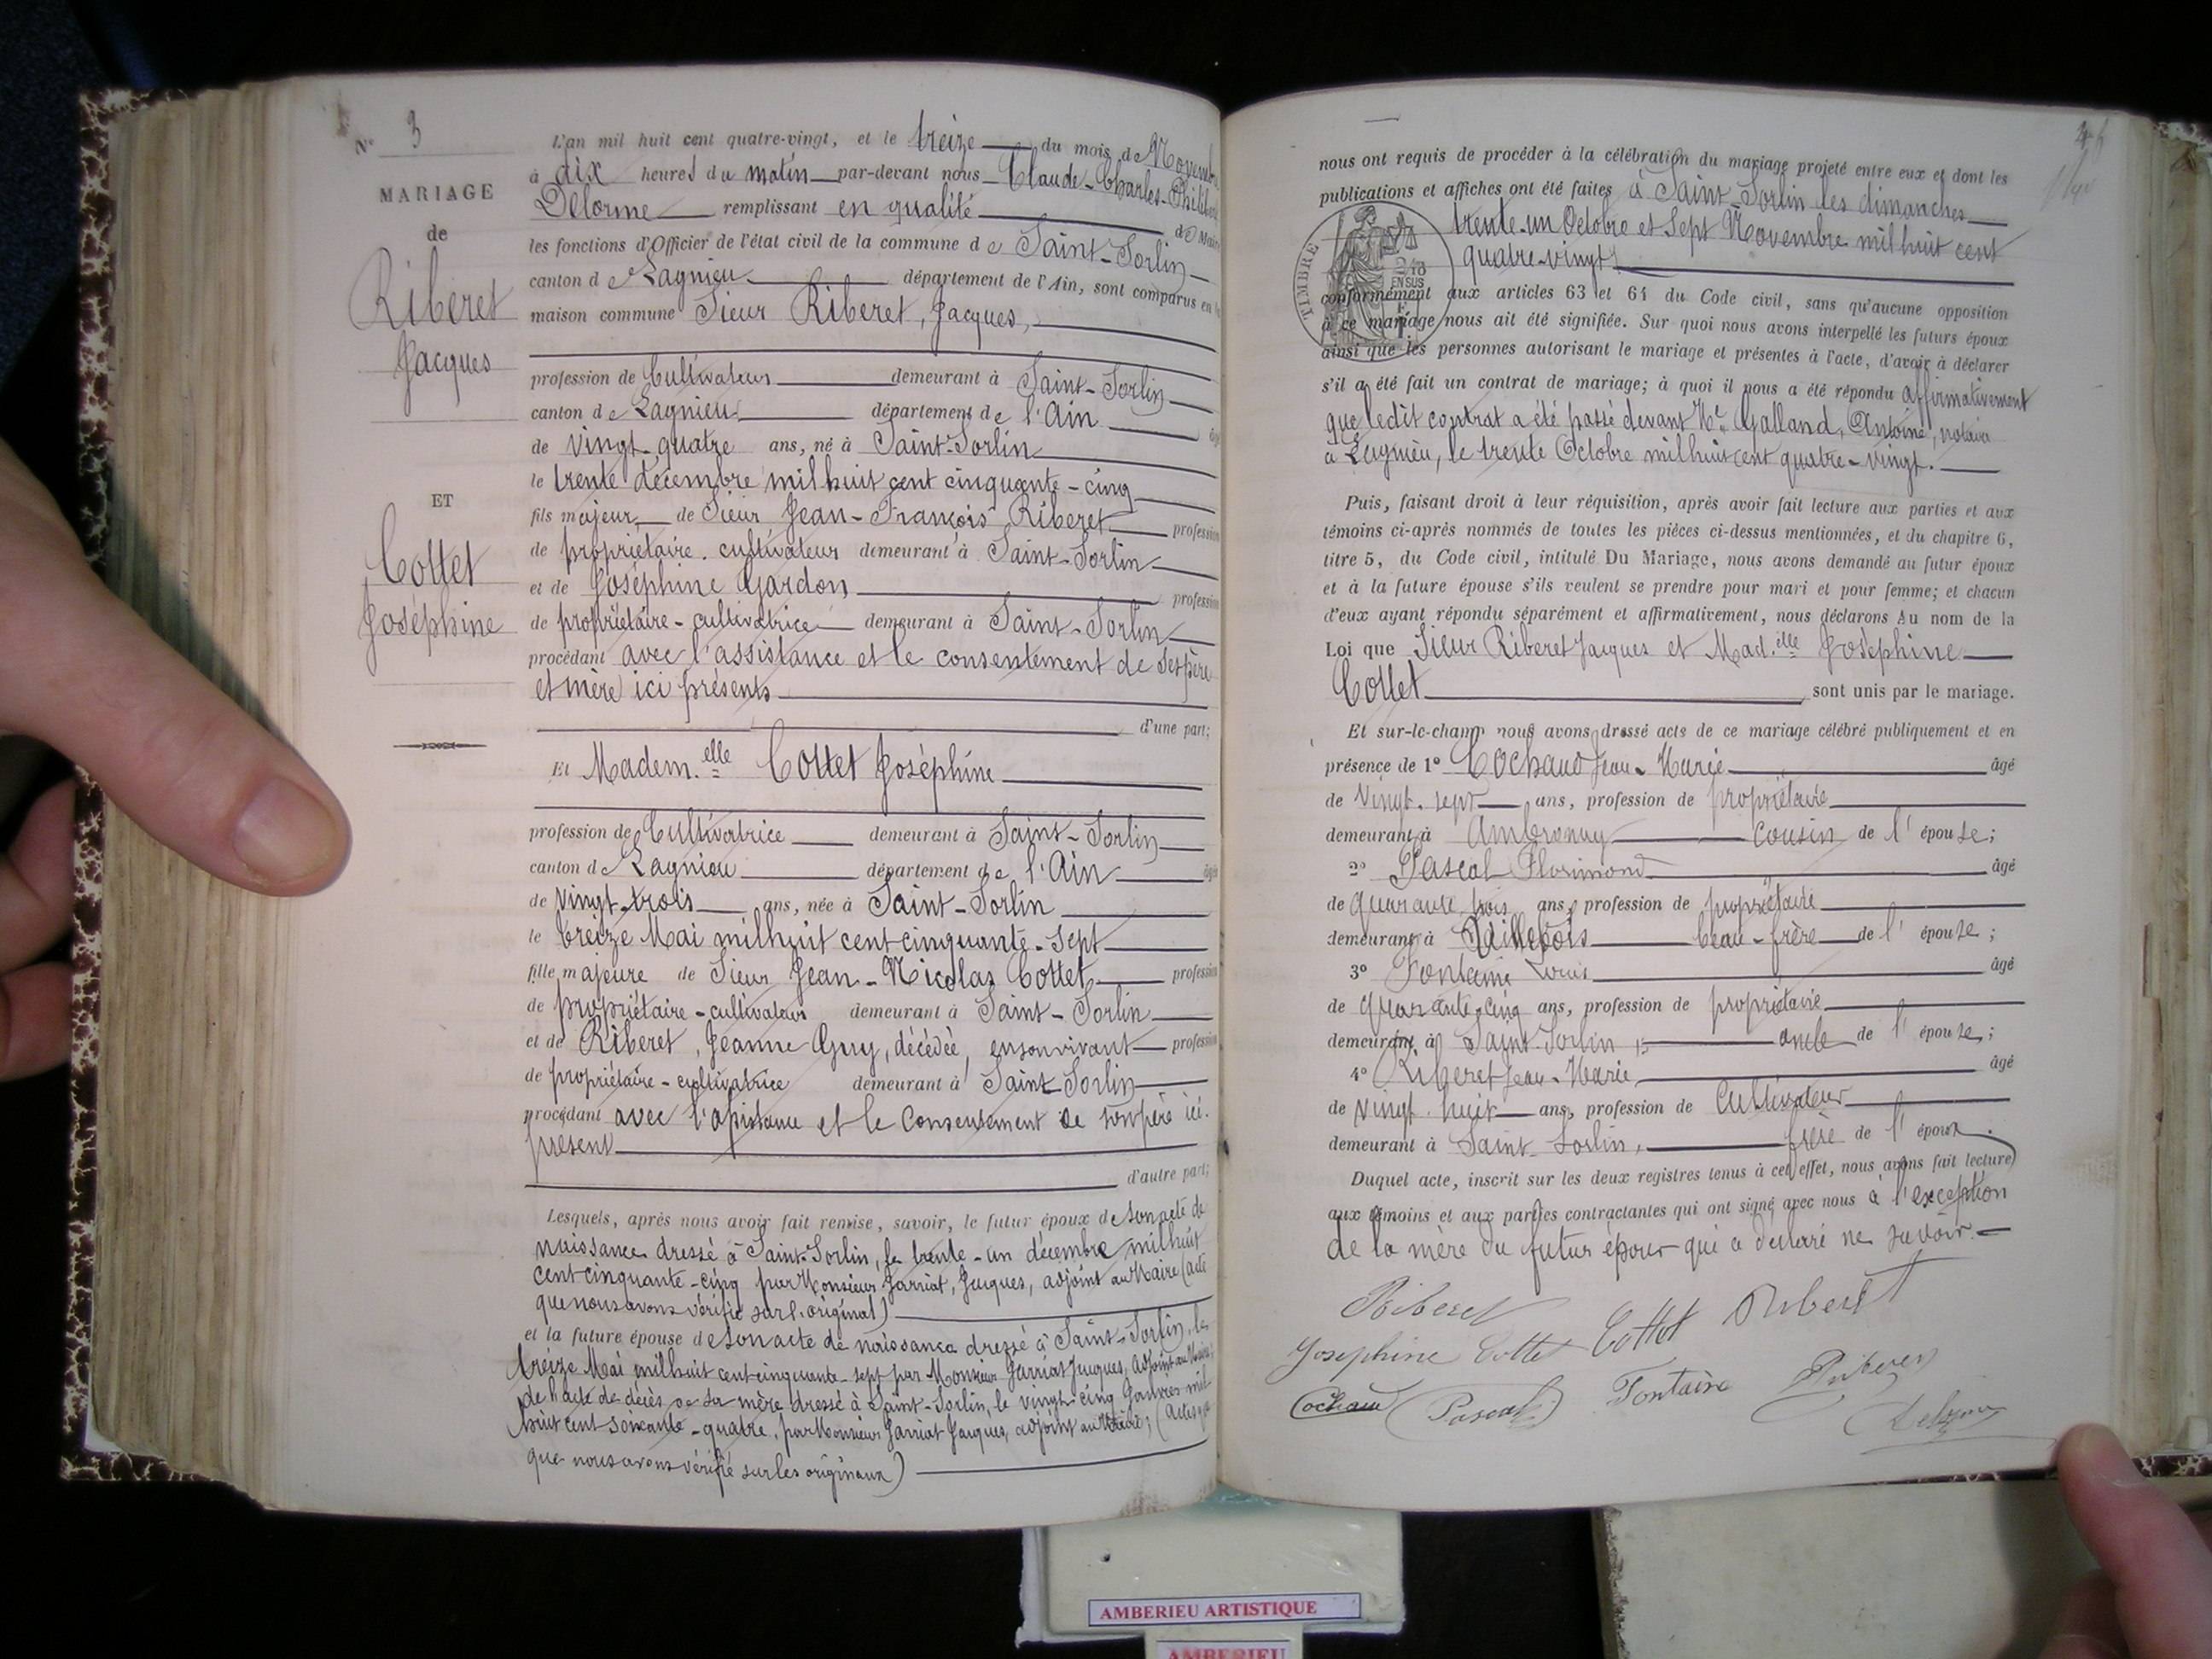 N° 3
MARIAGE
de
Riberet
Jacques
ET
Cottet
Joséphine
L'an mil huit cent quatre-vingt, et le treize du mois de Novembre
à dix heures du matin par-devant nous Claude-Charles-Philibert
Delorme remplissant en qualité de Maire
les fonctions d'Officier de l'état civil de la commune de Saint-Sorlin
canton de Lagnieu département de l'Ain, sont comparus en la
maison commune Sieur Riberet, Jacques,
profession de Cultivateur demeurant à Saint-Sorlin
canton de Lagnieu département de l'Ain âgé
de vingt-quatre ans, né à Saint-Sorlin
le trente décembre mil huit cent cinquante-cinq
fils majeur de Sieur Jean-François Riberet profession
de propriétaire-cultivateur demeurant à Saint-Sorlin
et de Joséphine Gardon profession
de propriétaire-cultivatrice demeurant à Saint-Sorlin
procédant avec l'assistance et le consentement de ses père
et mère ici présents
d'une part;
Et Madem.elle Cottet Joséphine
profession de Cultivatrice demeurant à Saint-Sorlin
canton de Lagnieu département de l'Ain âgée
de vingt-trois ans, née à Saint-Sorlin
le treize Mai mil huit cent cinquante-sept
fille majeure de Sieur Jean-Nicolas Cottet profession
de propriétaire-cultivateur demeurant à Saint-Sorlin
et de Riberet, Jeanne Guy, décédée, en son vivant profession
de propriétaire-cultivatrice demeurant à Saint-Sorlin
procédant avec l'assistance et le consentement de son père ici
présent
d'autre part;
Lesquels, après nous avoir fait remise, savoir, le futur époux de son acte de
naissance dressé à Saint-Sorlin, le trente-un décembre mil huit
cent cinquante-cinq par Monsieur Jarriat, Jacques, adjoint au Maire (acte
que nous avons vérifié sur l'original)
et la future épouse de son acte de naissance dressé à Saint-Sorlin, le
treize Mai mil huit cent cinquante-sept par Monsieur Jarriat Jacques, adjoint au Maire;
de l'acte de décès de sa mère dressé à Saint-Sorlin, le vingt-cinq Janvier mil
huit cent soixante-quatre, par Monsieur Jarriat Jacques, adjoint au Maire; (actes
que nous avons vérifié sur les originaux)
nous ont requis de procéder à la célébration du mariage projeté entre eux et dont les
publications et affiches ont été faites à Saint-Sorlin les dimanches
trente-un Octobre et Sept Novembre mil huit cent
quatre-vingt
TIMBRE
EN SUS
conformément aux articles 63 et 64 du Code civil, sans qu'aucune opposition
à ce mariage nous ait été signifiée. Sur quoi nous avons interpellé les futurs époux
ainsi que les personnes autorisant le mariage et présentes à l'acte, d'avoir à déclarer
s'il a été fait un contrat de mariage; à quoi il nous a été répondu affirmativement
que ledit contrat a été passé devant Me Galland, Antoine, notaire
à Lagnieu, le trente Octobre mil huit cent quatre-vingt.
Puis, faisant droit à leur réquisition, après avoir fait lecture aux parties et aux
témoins ci-après nommés de toutes les pièces ci-dessus mentionnées, et du chapitre 6,
titre 5, du Code civil, intitulé Du Mariage, nous avons demandé au futur époux
et à la future épouse s'ils veulent se prendre pour mari et pour femme; et chacun
d'eux ayant répondu séparément et affirmativement, nous déclarons Au nom de la
Loi que Sieur Riberet Jacques et Mad.elle Joséphine
Cottet sont unis par le mariage.
Et sur-le-champ nous avons dressé acte de ce mariage célébré publiquement et en
présence de 1° Cochaud Jean-Marie âgé
de Vingt-sept ans, profession de propriétaire
demeurant à Ambronay cousin de l'épouse;
2° Pascal Florimond âgé
de quarante trois ans, profession de propriétaire
demeurant à beau-frère de l'épouse;
3° Fontaine Louis âgé
de quarante-cinq ans, profession de propriétaire
demeurant à Saint-Sorlin oncle de l'épouse;
4° Riberet Jean-Marie âgé
de vingt-huit ans, profession de Cultivateur
demeurant à Saint-Sorlin, frère de l'époux.
Duquel acte, inscrit sur les deux registres tenus à cet effet, nous avons fait lecture
aux témoins et aux parties contractantes qui ont signé avec nous à l'exception
de la mère du futur époux qui a déclaré ne savoir.
Riberet
Josephine Cottet Cottet Riberet
Cochaud Pascal Fontaine Riberet
Delorme
AMBERIEU ARTISTIQUE
AMBERIEU